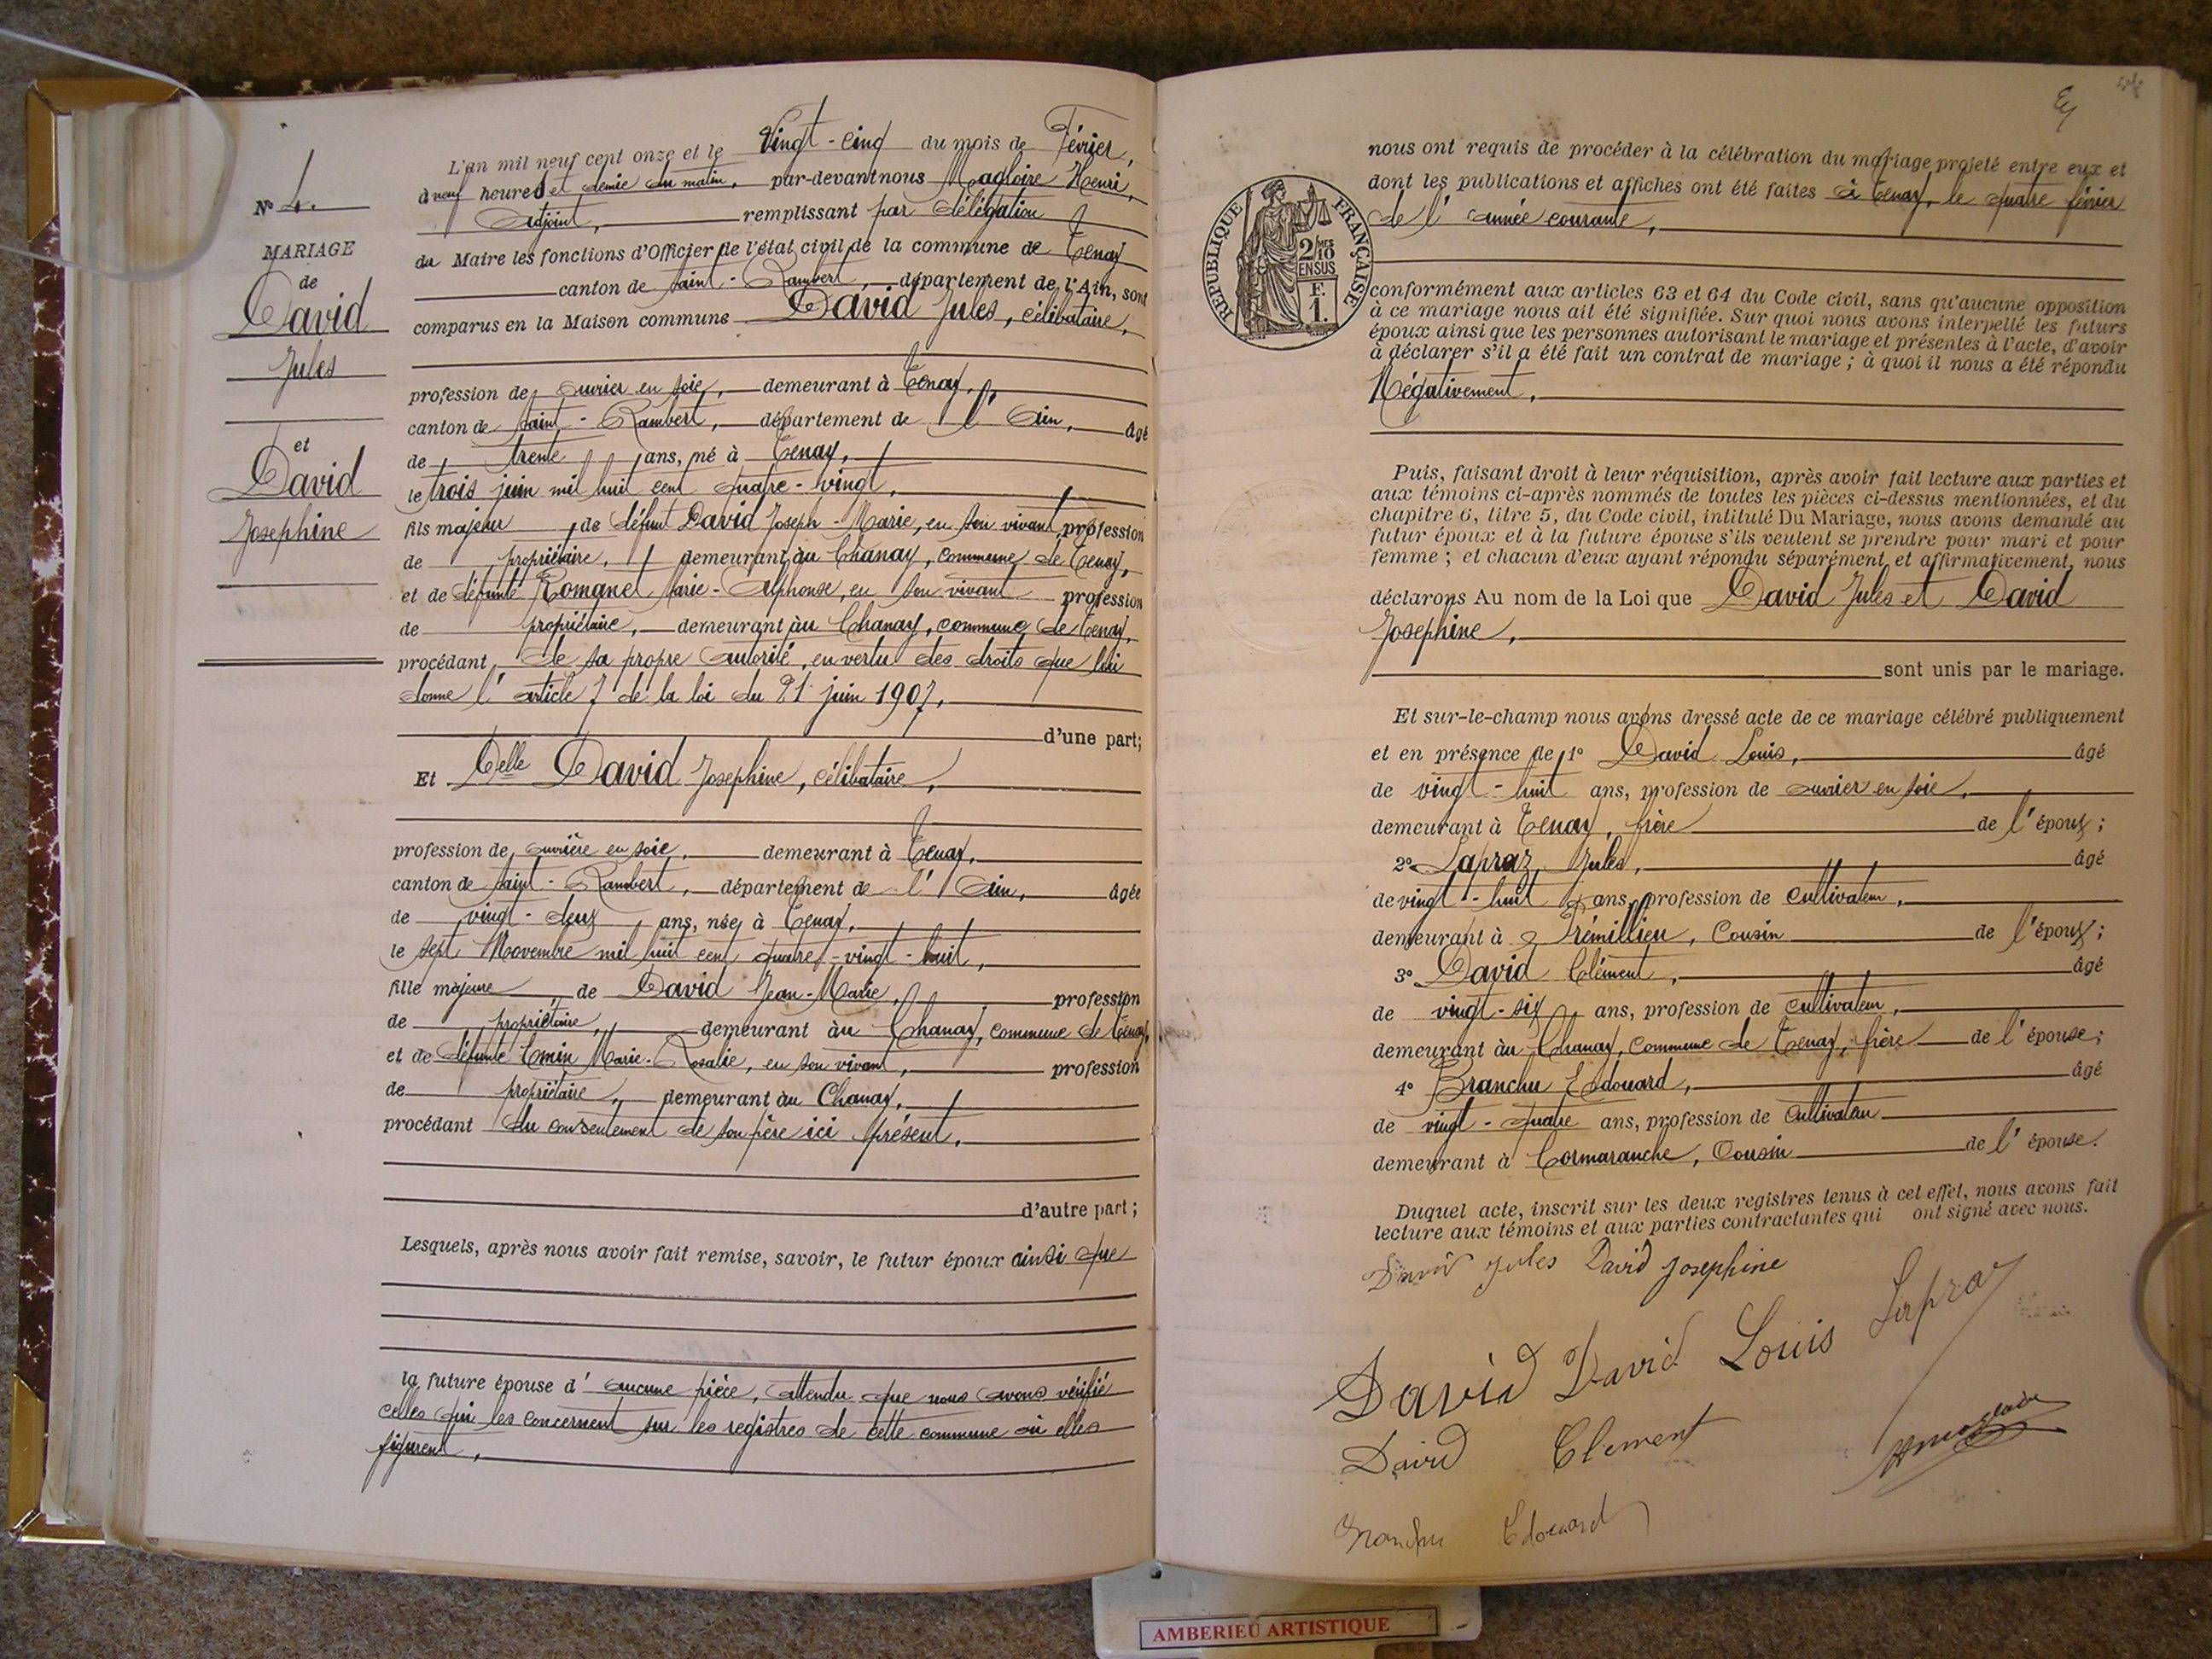 N° 4.
MARIAGE
de
David
Jules
et
David
Josephine
L'an mil neuf cent onze et le Vingt-cinq du mois de Février,
à neuf heures et demie du matin, par-devant nous Magloire Henri,
Adjoint, remplissant par délégation
du Maire les fonctions d'Officier de l'état civil de la commune de Tenay
canton de Saint-Rambert, département de l'Ain, sont
comparus en la Maison commune David Jules, célibataire,
profession de ouvrier en soie, demeurant à Tenay,
canton de Saint-Rambert, département de l'Ain, âgé
de trente ans, né à Tenay,
le trois juin mil huit cent quatre-vingt,
fils majeur de défunt David Joseph-Marie, en son vivant, profession
de propriétaire, demeurant au Chanay, commune de Tenay,
et de défunte Romanet Marie-Alphonse, en son vivant profession
de propriétaire, demeurant au Chanay, commune de Tenay,
procédant de sa propre autorité, en vertu des droits que lui
donne l'article 7 de la loi du 21 juin 1907,
d'une part;
Et Delle David Josephine, célibataire,
profession de ouvrière en soie, demeurant à Tenay,
canton de Saint-Rambert, département de l'Ain, âgée
de vingt-deux ans, née à Tenay,
le sept Novembre mil huit cent quatre-vingt-huit,
fille majeure de David Jean-Marie, profession
de propriétaire, demeurant au Chanay, commune de Tenay,
et de défunte Emin Marie-Rosalie, en son vivant, profession
de propriétaire, demeurant au Chanay,
procédant du consentement de son père ici présent,
d'autre part;
Lesquels, après nous avoir fait remise, savoir, le futur époux ainsi que
la future épouse d'aucune pièce, attendu que nous avons vérifié
celles qui les concernent sur les registres de cette commune où elles
figurent,
nous ont requis de procéder à la célébration du mariage projeté entre eux et
dont les publications et affiches ont été faites à Tenay, le quatre février
de l'année courante,
REPUBLIQUE FRANÇAISE
2/10 MES
EN SUS
F.
1.
conformément aux articles 63 et 64 du Code civil, sans qu'aucune opposition
à ce mariage nous ait été signifiée. Sur quoi nous avons interpellé les futurs
époux ainsi que les personnes autorisant le mariage et présentes à l'acte, d'avoir
à déclarer s'il a été fait un contrat de mariage ; à quoi il nous a été répondu
Négativement,
Puis, faisant droit à leur réquisition, après avoir fait lecture aux parties et
aux témoins ci-après nommés de toutes les pièces ci-dessus mentionnées, et du
chapitre 6, titre 5, du Code civil, intitulé Du Mariage, nous avons demandé au
futur époux et à la future épouse s'ils veulent se prendre pour mari et pour
femme ; et chacun d'eux ayant répondu séparément et affirmativement, nous
déclarons Au nom de la Loi que David Jules et David
Josephine,
sont unis par le mariage.
Et sur-le-champ nous avons dressé acte de ce mariage célébré publiquement
et en présence de 1° David Louis, âgé
de vingt-huit ans, profession de ouvrier en soie,
demeurant à Tenay, frère de l'époux;
2° Lapraz Jules, âgé
de vingt-huit ans, profession de cultivateur,
demeurant à Prémillieu, cousin de l'époux;
3° David Clément, âgé
de vingt-six ans, profession de cultivateur,
demeurant au Chanay, commune de Tenay, frère de l'épouse;
4° Branchu Edouard, âgé
de vingt-quatre ans, profession de cultivateur
demeurant à Cormaranche, Cousin de l'épouse.
Duquel acte, inscrit sur les deux registres tenus à cet effet, nous avons fait
lecture aux témoins et aux parties contractantes qui ont signé avec nous.
David Jules David Josephine
David David Louis Lapraz
David Clement
Branchu Edouard
AMBERIEU ARTISTIQUE